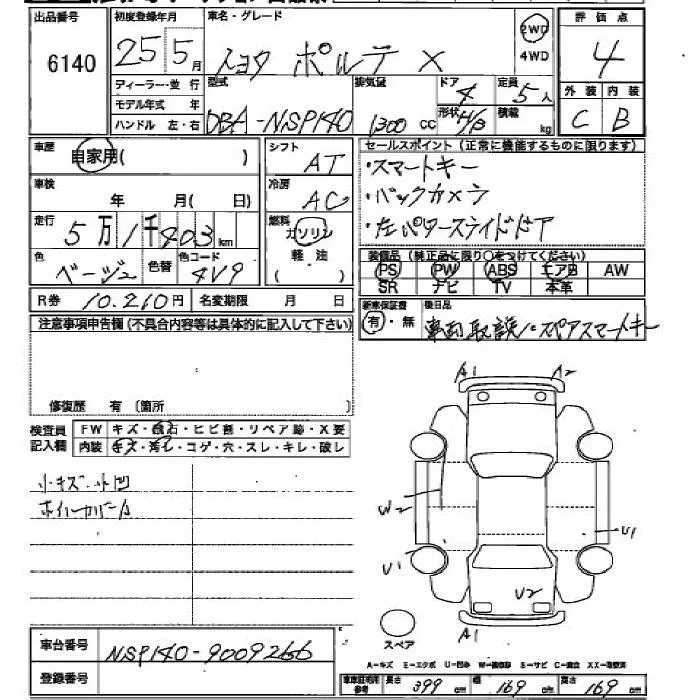 出品番号
6140
初度登録年月
25 5月
車名・グレード
トヨタ ポルテ X
2WD
4WD
評価点
4
外装 内装
C B
ディーラー・並行
モデル年式 年
ハンドル 左・右
型式
DBA-NSP140
排気量
1300 cc
ドア
4
形状 H/B
定員
5人
積載
kg
車歴
自家用( )
車検
年 月( 日)
走行
5万1千403km
色
ベージュ
色替
色コード
4V9
シフト
AT
冷房
AC
燃料
ガソリン
軽油
( )
セールスポイント(正常に機能するものに限ります)
・スマートキー
・バックカメラ
・左パワースライドドア
装備品(純正品に限り○をつけてください)
PS PW ABS エアB AW
SR ナビ TV 本革
R券 10,210円 名変期限 月 日
新車保証書
有・無
後日品
車両取説/・スペアスマートキー
注意事項申告欄(不具合内容等は具体的に記入して下さい)
修復歴 有 〔箇所 〕
検査員
記入欄
FW キズ・飛石・ヒビ割・リペア跡・X要
内装 キズ・汚レ・コゲ・穴・スレ・キレ・破レ
小キズ・小凹
ホイルカバーA
A1 A2
W2
U1
U1
U2
A1
スペア
車台番号
NSP140-9009266
登録番号
A-キズ E-エクボ U-凹み W-補修跡 S-サビ C-腐食 XX-取替済
車庫証明用
参考
長さ 399 cm 幅 169 cm 高さ 169 cm